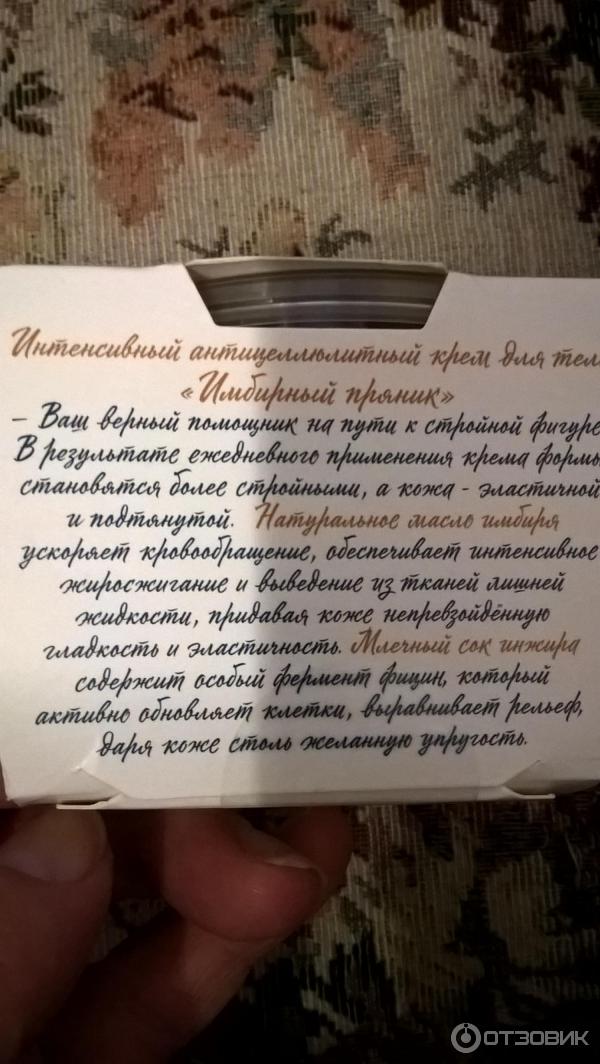 Интенсивный антицеллюлитный крем для тел
«Имбирный пряник»
– Ваш верный помощник на пути к стройной фигуре
В результате ежедневного применения крема формы
становятся более стройными, а кожа - эластичной
и подтянутой. Натуральное масло имбиря
ускоряет кровообращение, обеспечивает интенсивное
жиросжигание и выведение из тканей лишней
жидкости, придавая коже непревзойдённую
гладкость и эластичность. Млечный сок инжира
содержит особый фермент фицин, который
активно обновляет клетки, выравнивает рельеф,
даря коже столь желанную упругость.
ОТЗОВИК